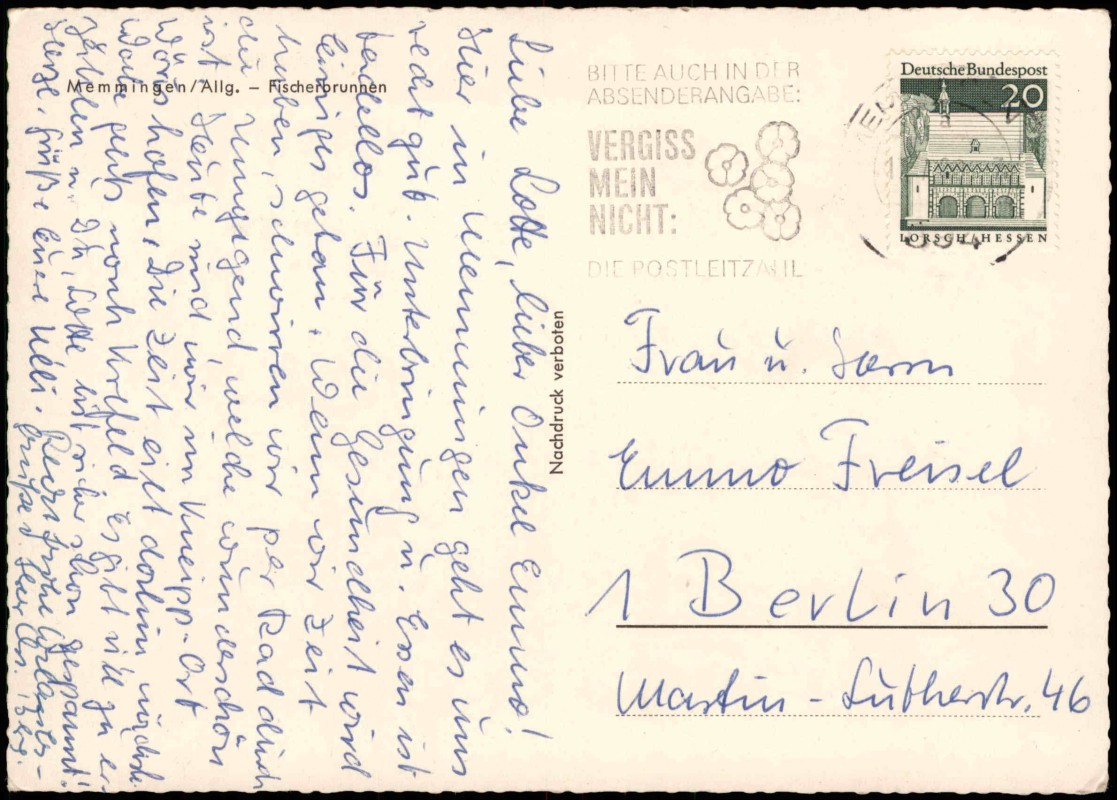 Memmingen/Allg. – Fischerbrunnen
Liebe Lotte, lieber Onkel Emmo!
Hier in Memmingen geht es uns
recht gut. Unterbringung u. Essen ist
tadellos. Für die Gesundheit wird
einiges getan. Wenn wir Zeit
haben, schwirren wir per Rad durch
die Umgegend, welche wunderschön
ist. Heute sind wir im Kneipp-Ort
Wörishofen. Die Zeit eilt dahin, nächste
Woche gehts nach Krefeld. Es gibt viel zu er-
zählen u. Du, Lotte bist sicher schon gespannt!
Herzl. Grüße Eure Nelli. Recht frohe
Grüße
Nachdruck verboten
BITTE AUCH IN DER
ABSENDERANGABE:
VERGISS
MEIN
NICHT:
DIE POSTLEITZAHL
Deutsche Bundespost
20
LORSCH/HESSEN
Frau u. Herrn
Emmo Freisel
1 Berlin 30
Martin-Lutherstr. 46